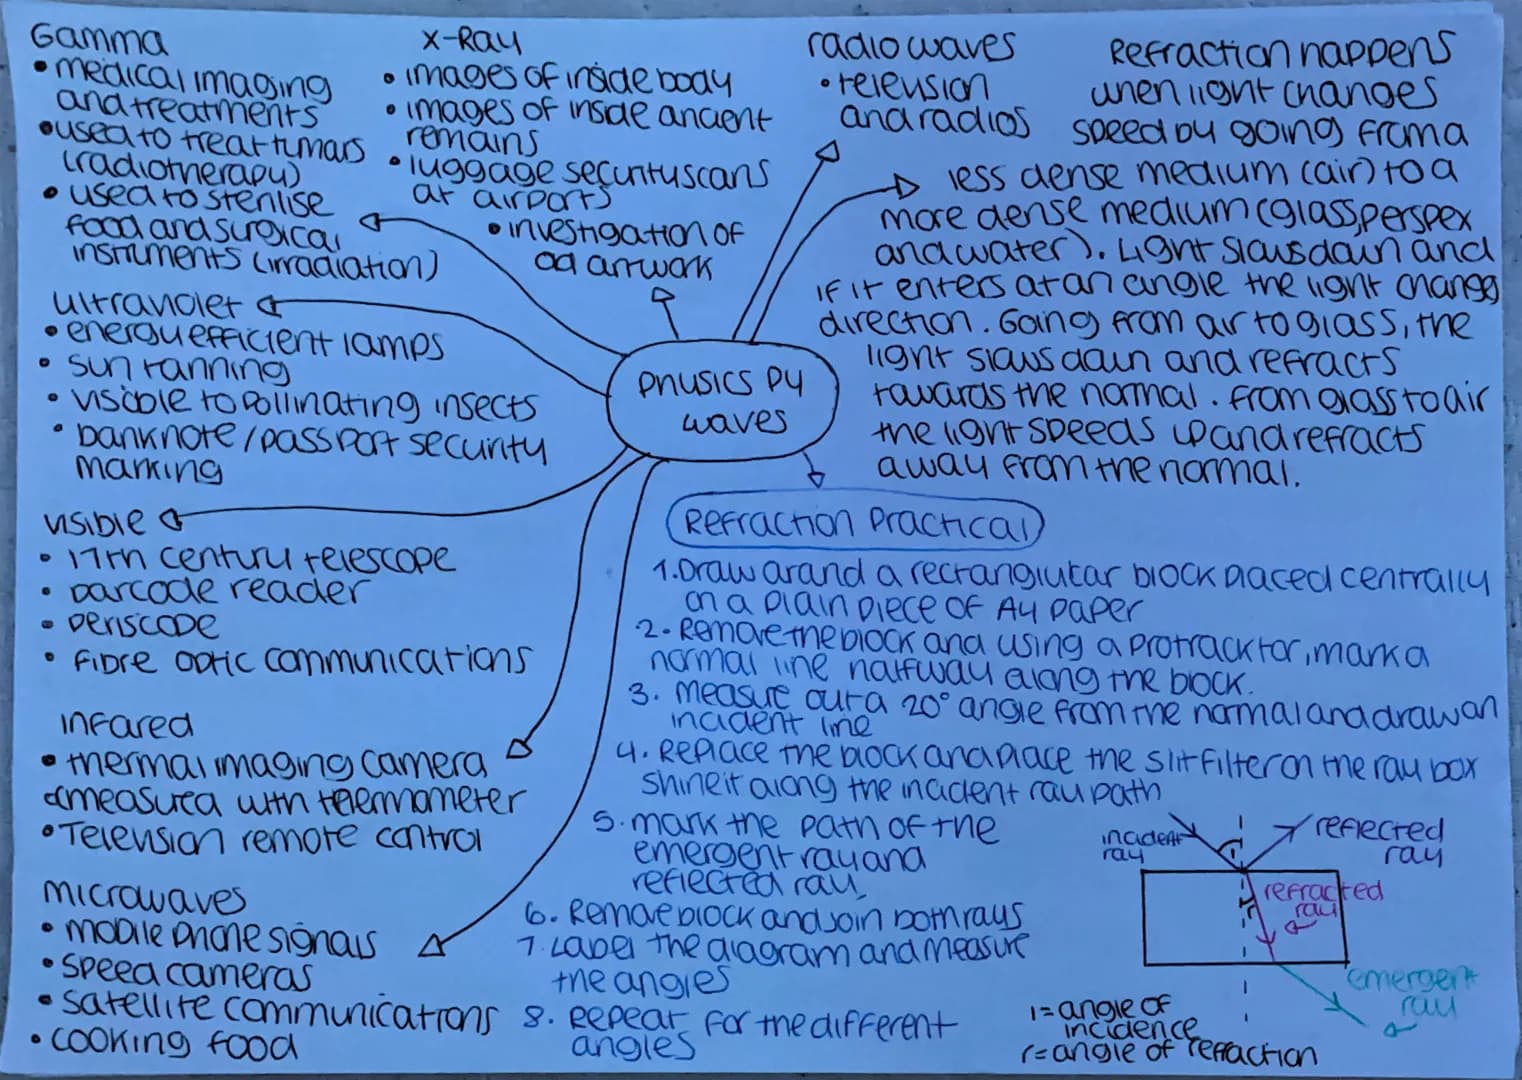 Gamma
• medical imaging
and treatments
• used to treat tumars
(radiotherapy)
• used to sterilise
food and surgical
instruments (irradiation)
x-Ray
• images of inside body
• images of inside ancient
remains
• luggage security scans
at airports
• investigation of
old artwork
radio waves
• television
and radios
Refraction happens
when light changes
speed by going from a
less dense medium (air) to a
more dense medium (glass, perspex
and water). Light slows down and
if it enters at an angle the light changes
direction. Going from air to glass, the
light slows down and refracts
towards the normal. From glass to air
the light speeds up and refracts
away from the normal.
ultraviolet
• energy efficient lamps
• sun tanning
• visible to pollinating insects
• banknote / passport security
marking
Physics P4
waves
visible
• 17th century telescope
• barcode reader
• periscope
• fibre optic communications
infared
• thermal imaging camera
measured with thermometer
• Television remote control
microwaves
• mobile phone signals
• speed cameras
• satellite communications
• cooking food
Refraction Practical
1. Draw around a rectanglular block placed centrally
on a plain piece of A4 paper
2. Remove the block and using a protracktor, mark a
normal line halfway along the block.
3. Measure out a 20° angle from the normal and draw an
incident line
4. Replace the block and place the slit filter on the ray box
shine it along the incident ray path
5. mark the path of the
emergent ray and
reflected ray
6. Remove block and join both rays
7. Label the diagram and measure
the angles
8. Repeat for the different
angles
incident
ray
i
reflected
ray
r
refracted
ray
emergent
ray
i = angle of
incidence
r = angle of refraction